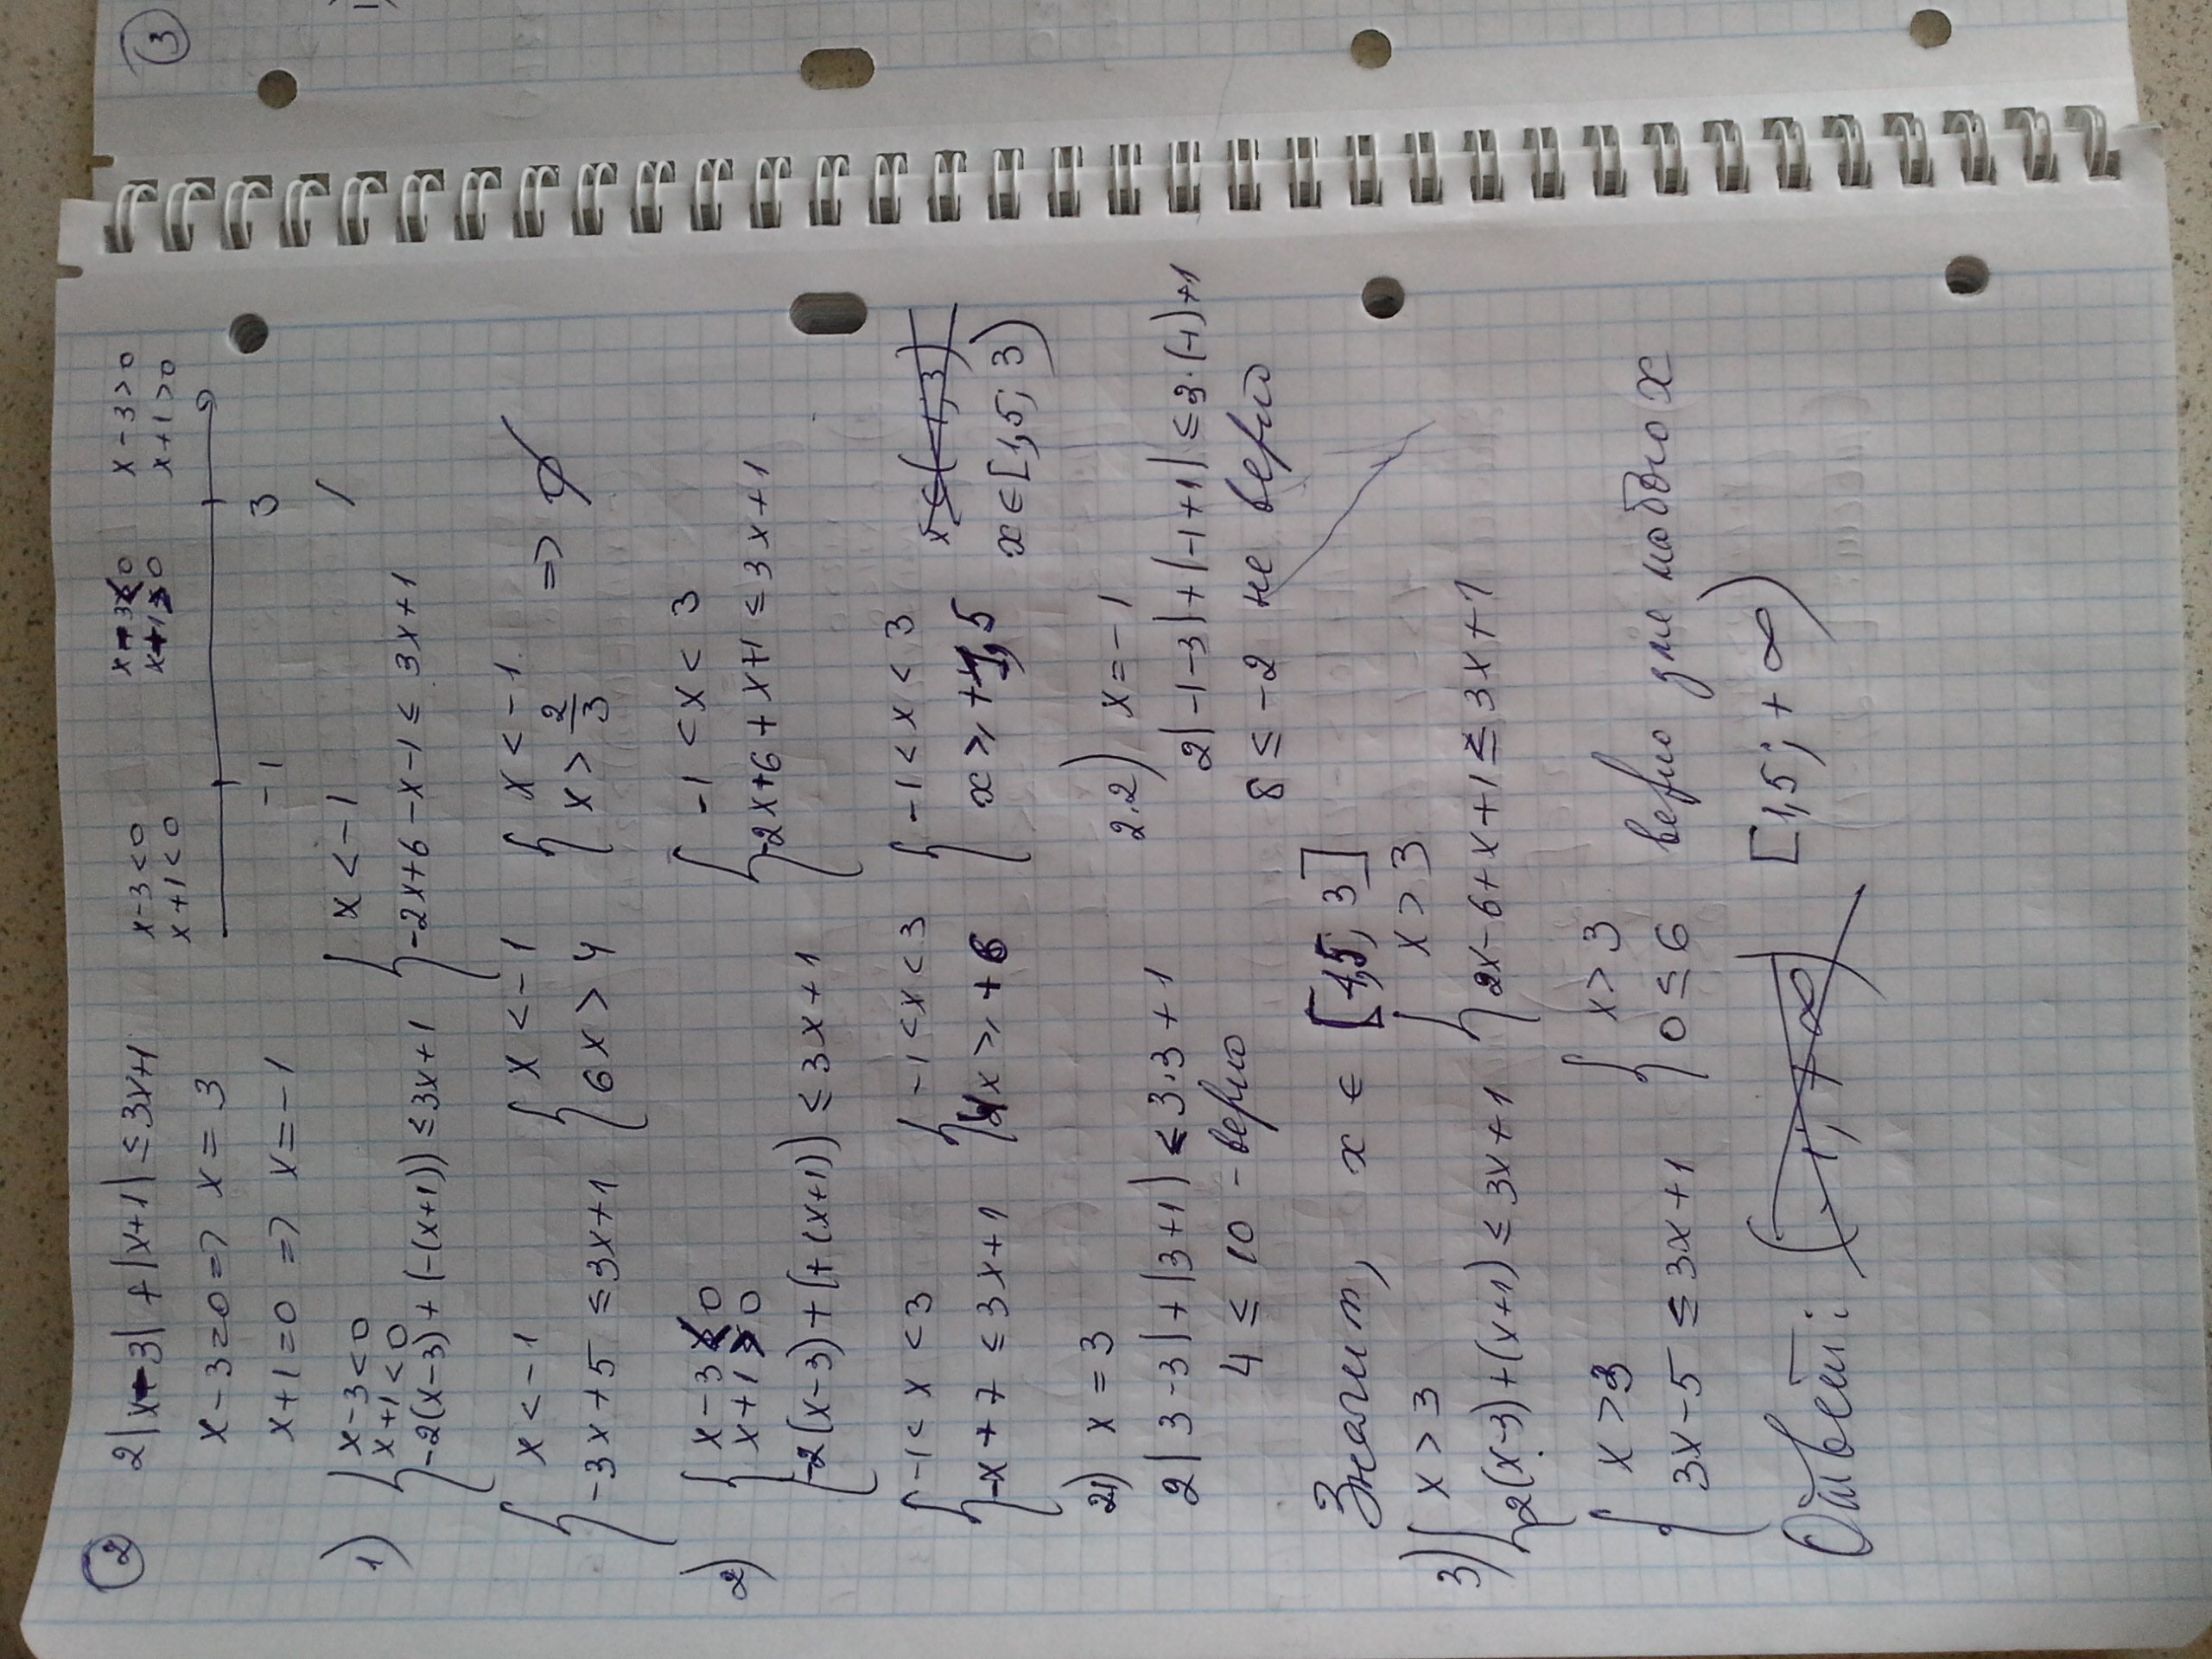 3
1)
2
2|x-3| + |x+1| ≤ 3x+1
x-3<0
x+1<0
x-3<0
x+1>0
x-3>0
x+1>0
x-3=0 => x=3
-1
3
x+1=0 => x=-1
1) { x-3<0
x+1<0
-2(x-3)+(-(x+1)) ≤ 3x+1
{ x<-1
-2x+6-x-1 ≤ 3x+1
{ x<-1
-3x+5 ≤ 3x+1
{ x<-1
6x>4
{ x<-1
x>2/3
=> ∅
2) { x-3<0
x+1>0
-2(x-3)+(+(x+1)) ≤ 3x+1
{ -1<x<3
-2x+6+x+1 ≤ 3x+1
{ -1<x<3
-x+7 ≤ 3x+1
{ -1<x<3
4x ≥ +6
{ -1<x<3
x ≥ +1,5
x∈(-1,3)
x∈[1,5; 3)
21) x=3
2|3-3|+|3+1| ≤ 3·3+1
4 ≤ 10 - верно
2.2) x=-1
2|-1-3|+|-1+1| ≤ 3·(-1)+1
8 ≤ -2 не верно
Значит, x ∈ [1,5; 3]
3) { x>3
2(x-3)+(x+1) ≤ 3x+1
{ x>3
2x-6+x+1 ≤ 3x+1
{ x>3
3x-5 ≤ 3x+1
{ x>3
0 ≤ 6
верно для любого x
Ответ: [1,5; +∞)